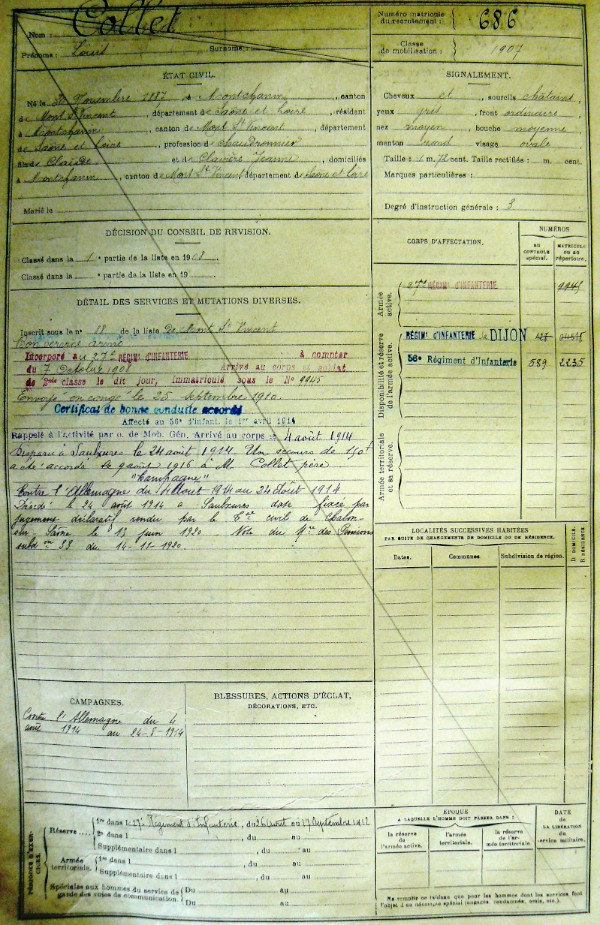 Nom : Collet
Prénoms : Louis Surnoms :
Numéro matricule du recrutement : 686
Classe de mobilisation : 1907
ÉTAT CIVIL.
Né le Novembre 1887, à Montchanin, canton
de Mont St Vincent, département de Saône et Loire, résidant
à Montchanin, canton de Mont St Vincent, département
de Saône et Loire, profession de Chaudronnier
fils de Claude et de Jeanne, domiciliés
à Montchanin, canton de Mont St Vincent département de Saône et Loire
Marié le
SIGNALEMENT.
Cheveux et sourcils châtains
yeux gris, front ordinaire
nez moyen, bouche moyenne
menton rond visage ovale
Taille : 1 m. 72 cent. Taille rectifiée : m. cent.
Marques particulières :
Degré d'instruction générale : 3
DÉCISION DU CONSEIL DE RÉVISION.
Classé dans la 1e partie de la liste en 1908
Classé dans la e partie de la liste en 19
DÉTAIL DES SERVICES ET MUTATIONS DIVERSES.
Inscrit sous le no 18 de la liste de Mont St Vincent
Incorporé au 27e RÉGIMENT D'INFANTERIE à compter
du 7 Octobre 1908 Arrivé au corps et soldat
de 2me classe le dit jour, immatriculé sous le No 9945
Envoyé en congé le 25 Septembre 1910.
Certificat de bonne conduite accordé
Affecté au 56e d'Infant. le 1er avril 1914
Rappelé à l'activité par o. de Mob. Gén. Arrivé au corps le 4 août 1914
Disparu à Saulxures le 24 août 1914. Un secours de 150f
a été accordé le 9 août 1916 à M. Collet père
"Campagne"
Contre l'Allemagne du 4 Août 1914 au 24 Août 1914
Décédé le 24 août 1914 à Saulxures date fixée par
jugement déclaratif rendu par le Tal civil de Chalon
sur Saône le 13 juin 1920 Note du Mre des Pensions
33 du 14-11-1920.
CORPS D'AFFECTATION.
NUMÉROS
AU CONTRÔLE spécial.
MATRICULE OU AU répertoire.
Armée active.
27e RÉGIMENT D'INFANTERIE 9945
Disponibilité et réserve de l'armée active.
RÉGIMt D'INFANTERIE de DIJON
56e Régiment d'Infanterie 589 2235
Armée territoriale et sa réserve.
LOCALITÉS SUCCESSIVES HABITÉES
PAR SUITE DE CHANGEMENTS DE DOMICILE OU DE RÉSIDENCE.
Dates. Communes. Subdivision de région. D. DOMICILE R. RÉSIDENCE
CAMPAGNES.
Contre l'Allemagne du 4
août 1914 au 24-8-1914
BLESSURES, ACTIONS D'ÉCLAT,
DÉCORATIONS, ETC.
Réserve 1re dans le 27e Régiment d'Infanterie, du 26 Août au 17 Septembre 1912
2e dans l , du au
Supplémentaire dans l , du au
Armée territoriale. 1re dans l , du au
Supplémentaire dans l , du au
Spéciales aux hommes du service de garde des voies de communication. Du au
Du au
ÉPOQUE
A LAQUELLE L'HOMME DOIT PASSER DANS :
la réserve de l'armée active. l'armée territoriale. la réserve de l'armée territoriale.
DATE DE LA LIBÉRATION du service militaire.